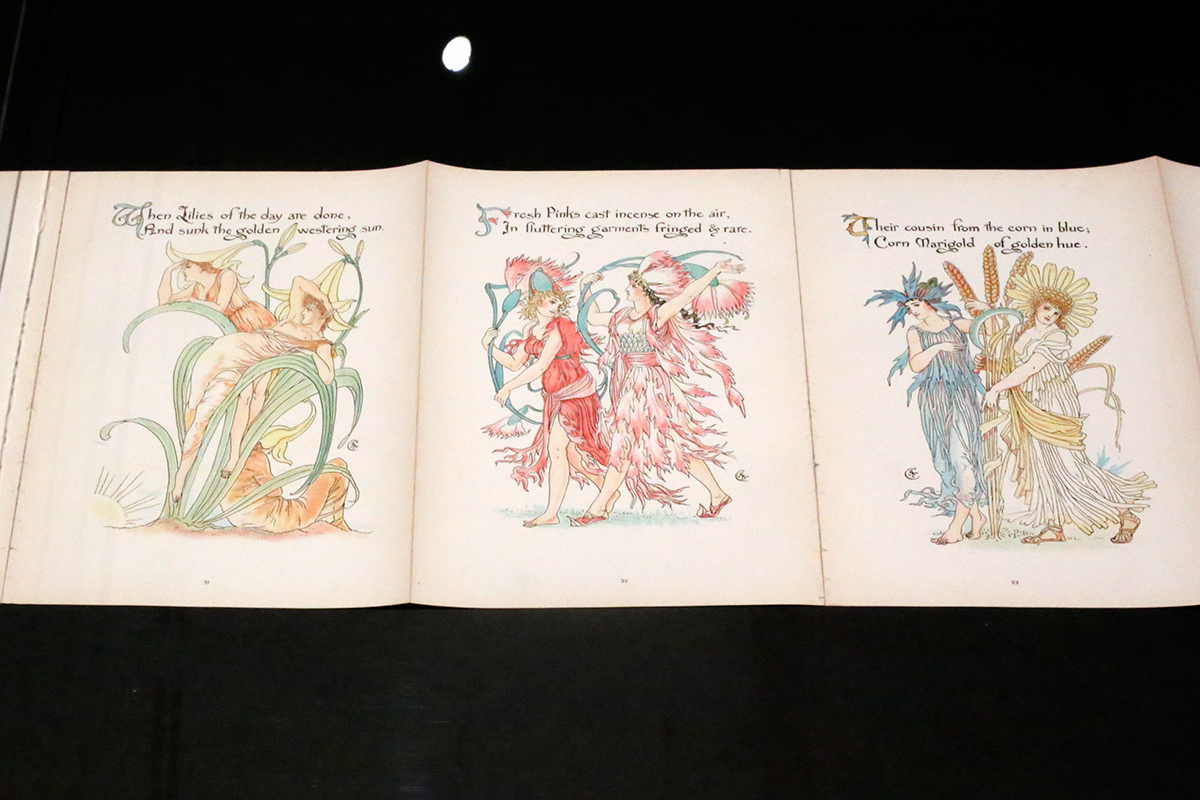 When Lilies of the day are done,
And sunk the golden westering sun.
31
Fresh Pinks cast incense on the air,
In fluttering garments fringed & rare.
32
Their cousin from the corn in blue;
Corn Marigold of golden hue.
33